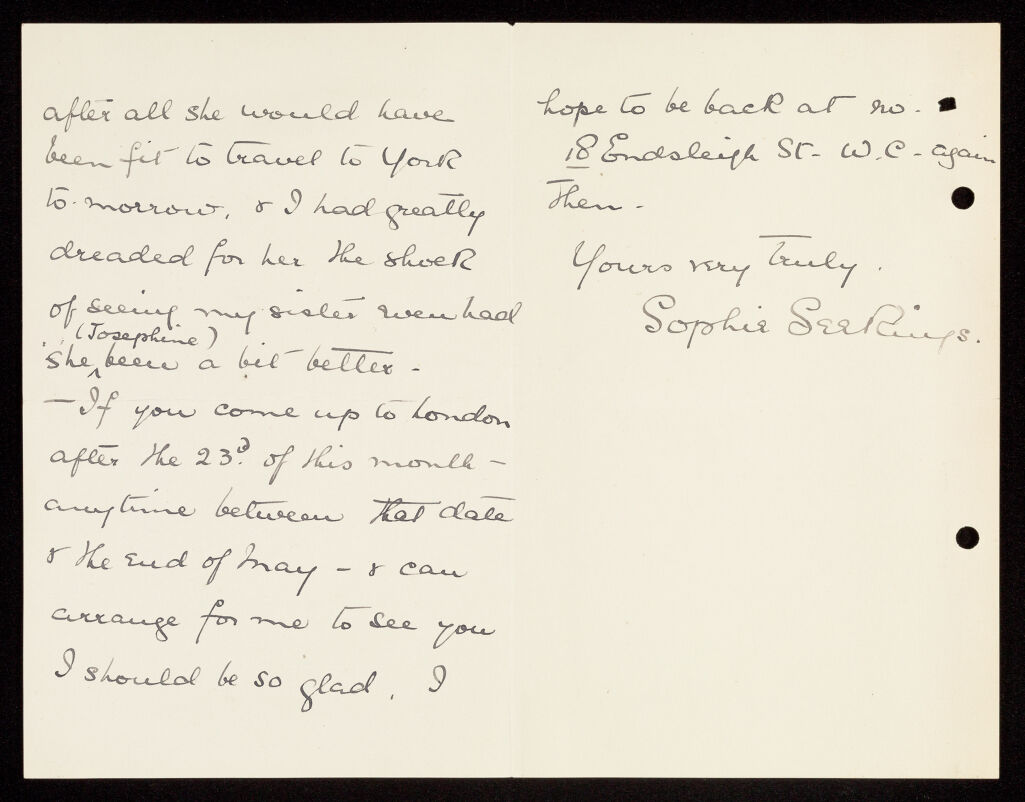 after all she would have
been fit to travel to York
to-morrow, & I had greatly
dreaded for her the shock
of seeing my sister even had
(Josephine)
she been a bit better -
- If you come up to London
after the 23d. of this month -
anytime between that date
& the end of May - & can
arrange for me to see you
I should be so glad. I
hope to be back at no.
18 Endsleigh St - W.C - again
then -
Yours very truly.
Sophie Seekings.